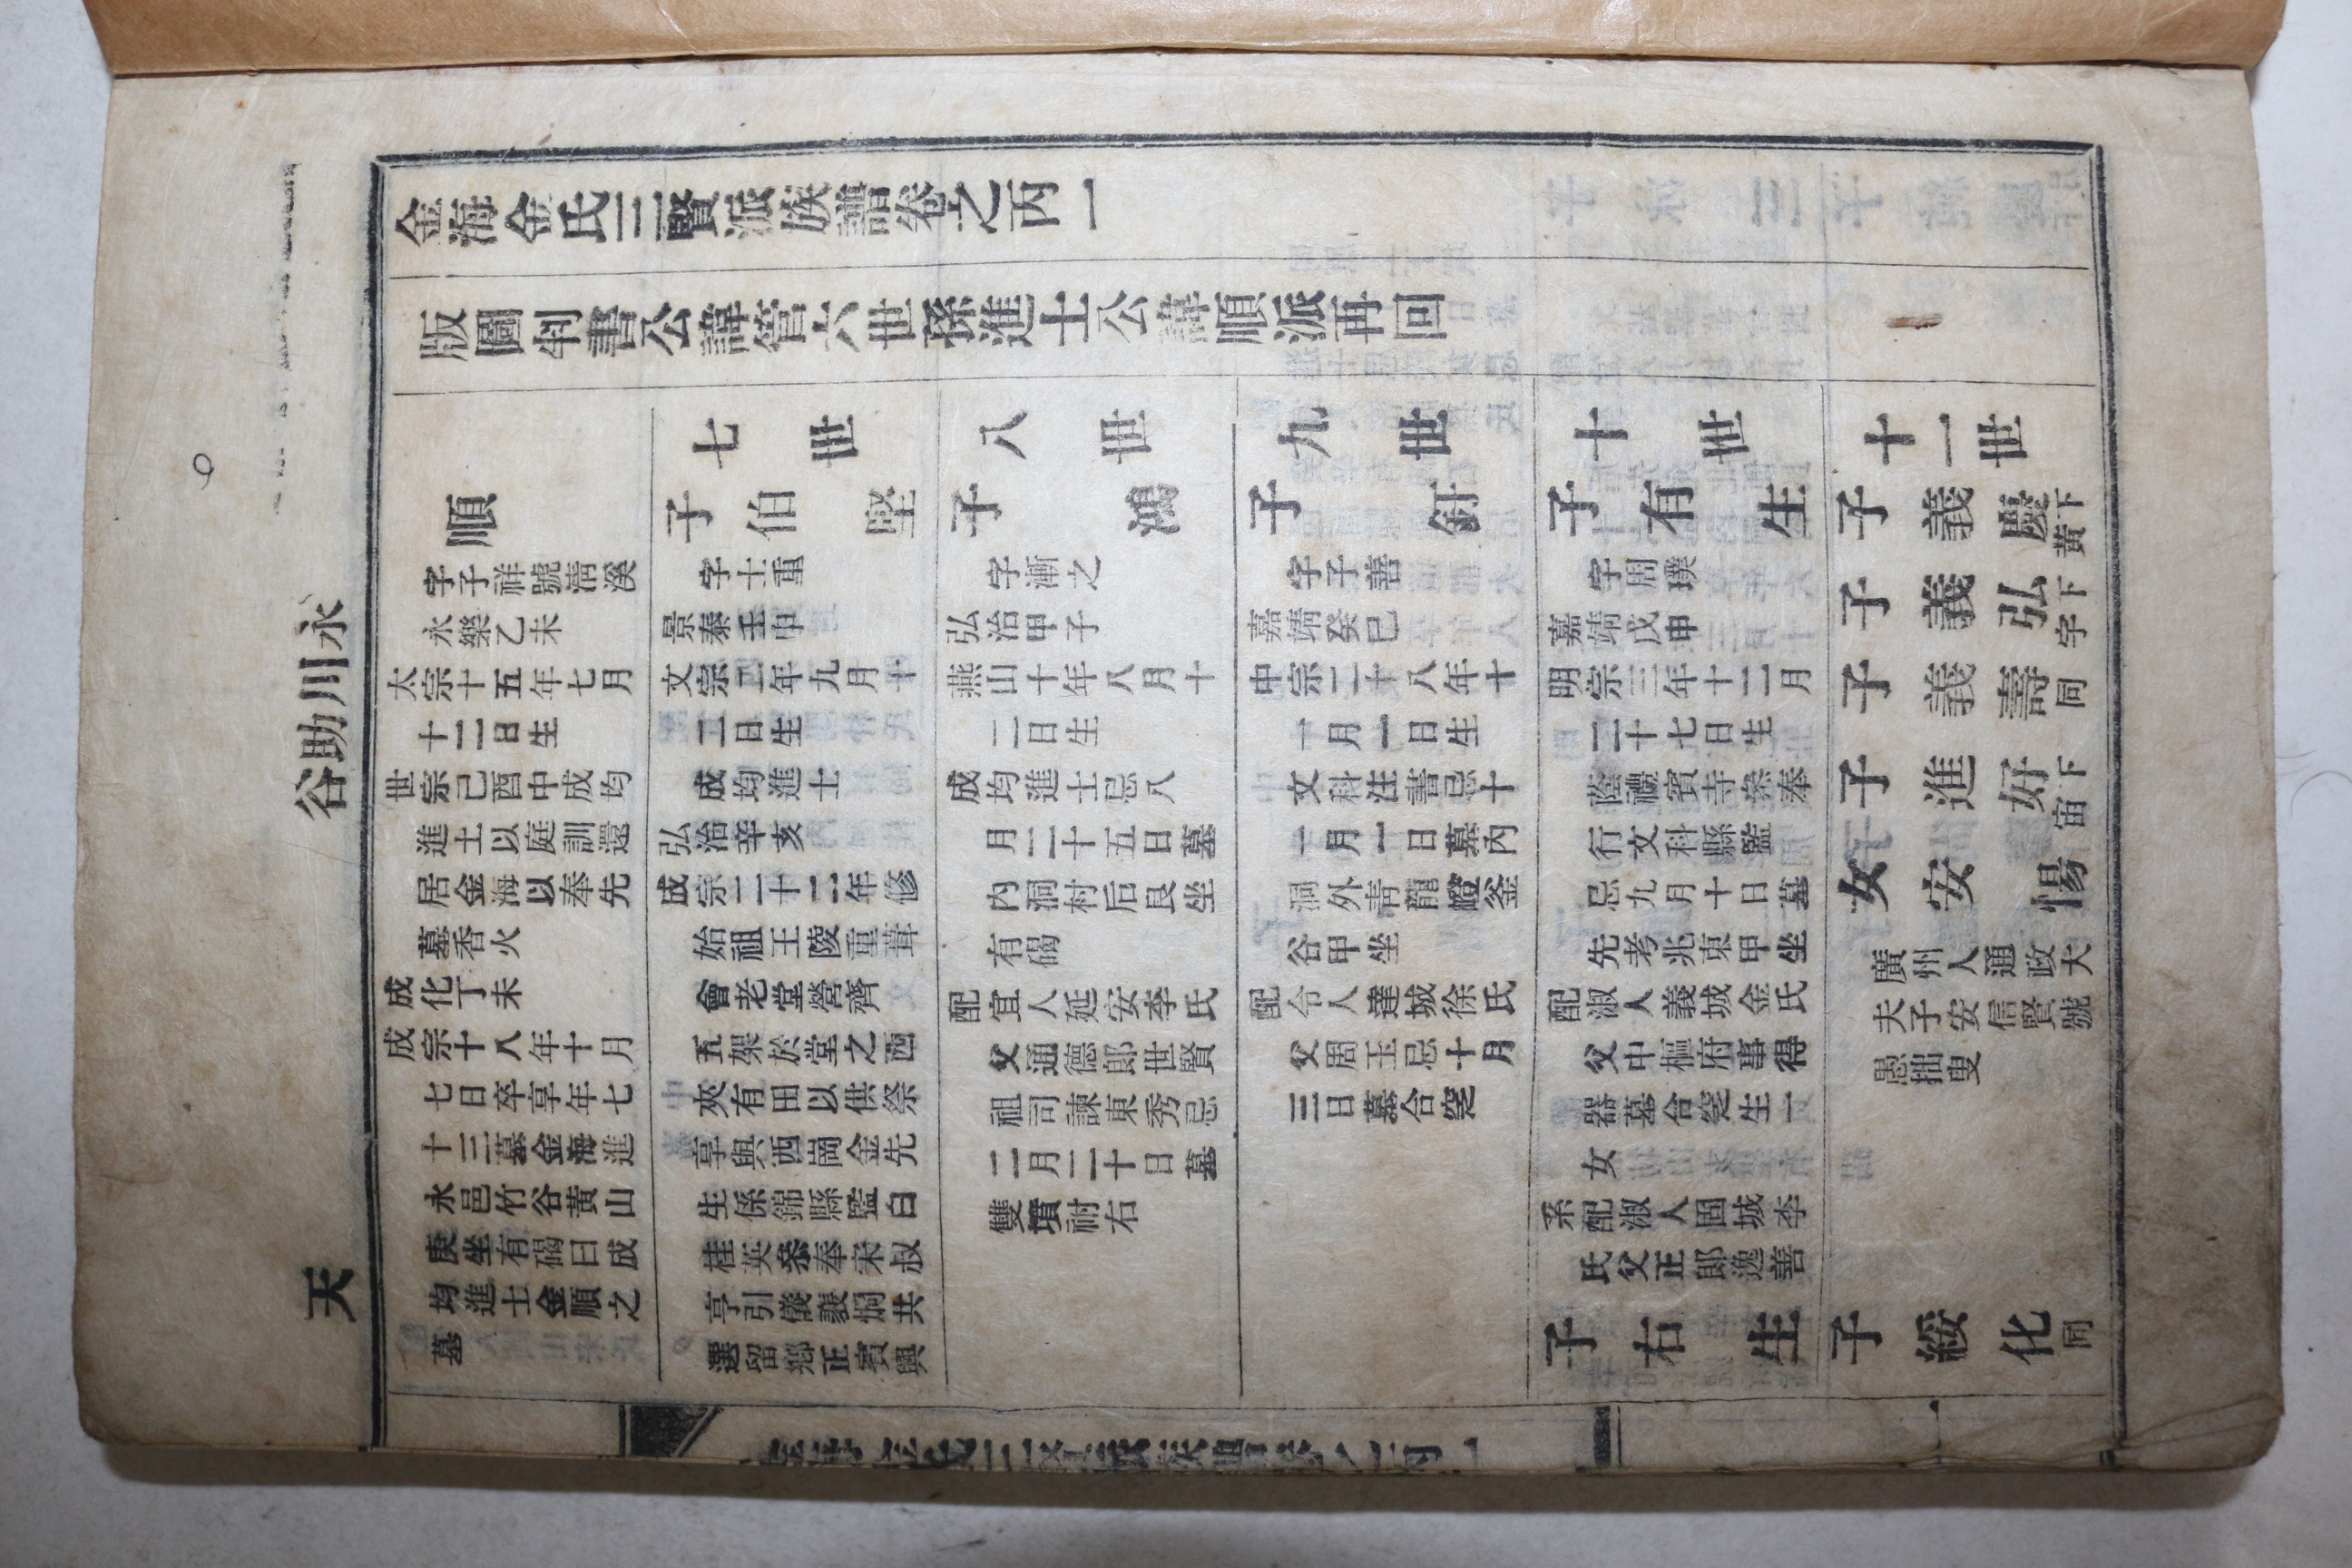 永川助谷
天
金海金氏三賢派族譜卷之丙一
版圖判書公諱管六世孫進士公諱順派再回
順
字子祥號清溪
永樂乙未
太宗十五年七月
十二日生
世宗己酉中成均
進士以庭訓還
居金海以奉先
墓香火
成化丁未
成宗十八年十月
七日卒享年七
十三墓金海進
永邑竹谷黄山
庚坐有碣曰成
均進士金順之
墓
七世
子伯堅
字士重
景泰壬申
文宗二年九月十
二日生
成均進士
弘治辛亥
成宗二十二年修
始祖王陵重葺
會老堂營齊
五架於堂之西
夾有田以供祭
享與西岡金先
生係錦縣監白
桂英叅奉宋叔
亨引儀裵烱共
選留鄕正賓興
八世
子鴻
字漸之
弘治甲子
燕山十年八月十
二日生
成均進士忌八
月二十五日墓
内洞村后艮坐
有碣
配宜人延安李氏
父通德郎世賢
祖司諫東秀忌
二月二十日墓
雙墳祔右
九世
子釪
字子善
嘉靖癸巳
中宗二十八年十
一月一日生
文科注書忌十
一月一日墓内
洞外靑龍嶝釜
谷甲坐
配令人達城徐氏
父周玉忌十月
三日墓合窆
十世
子有生
字周璞
嘉靖戊申
明宗三年十二月
二十七日生
蔭禮賓寺叅奉
行文科縣監
忌九月十日墓
先考兆東甲坐
配淑人義城金氏
父中樞府事得
器墓合窆生一
女
系配淑人固城李
氏父正郎逸善
子右生
十一世
子義慶下黄
子義弘下宇
子義壽同
子進好下宙
女安惕
廣州人通政大
夫子安信賢號
愚拙叟
子綏化同